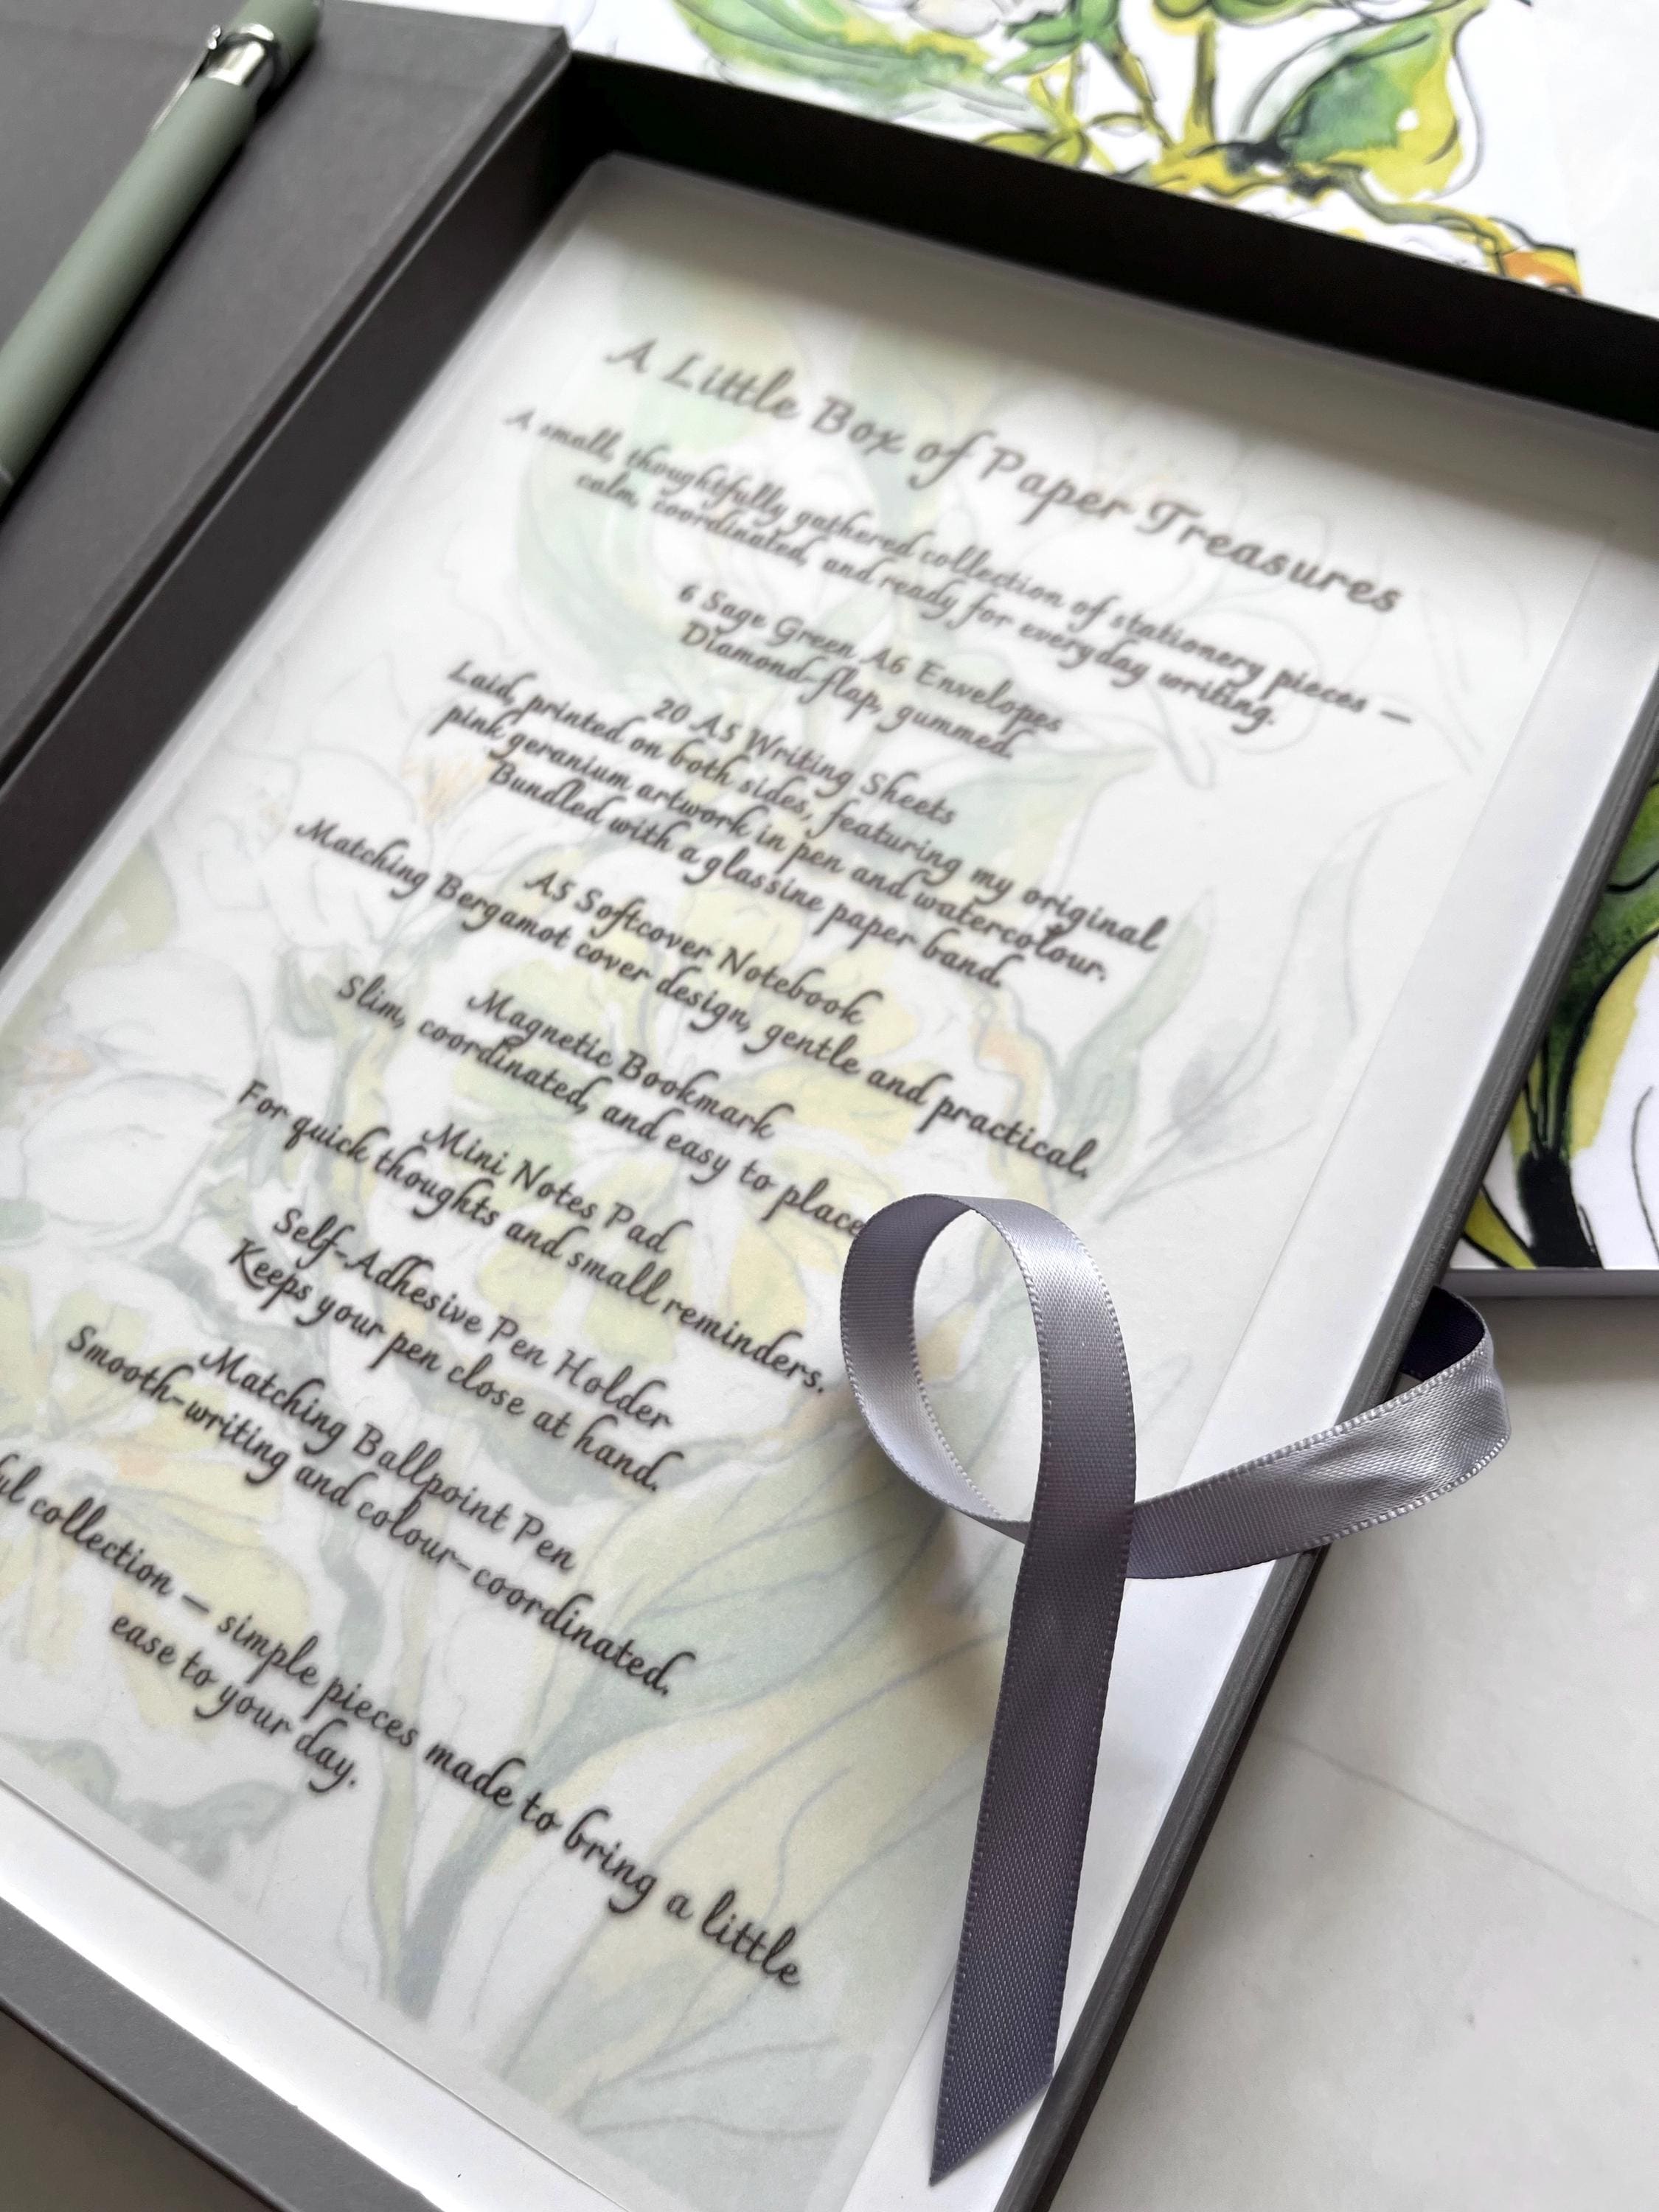 A Little Box of Paper Treasures
A small, thoughtfully gathered collection of stationery pieces —
calm, coordinated, and ready for everyday writing.
6 Sage Green A6 Envelopes
Diamond-flap, gummed.
20 A5 Writing Sheets
Laid, printed on both sides, featuring my original
pink geranium artwork in pen and watercolour.
Bundled with a glassine paper band.
A5 Softcover Notebook
Matching Bergamot cover design, gentle and practical.
Magnetic Bookmark
Slim, coordinated, and easy to place
Mini Notes Pad
For quick thoughts and small reminders.
Self-Adhesive Pen Holder
Keeps your pen close at hand.
Matching Ballpoint Pen
Smooth-writing and colour-coordinated.
collection — simple pieces made to bring a little
ease to your day.